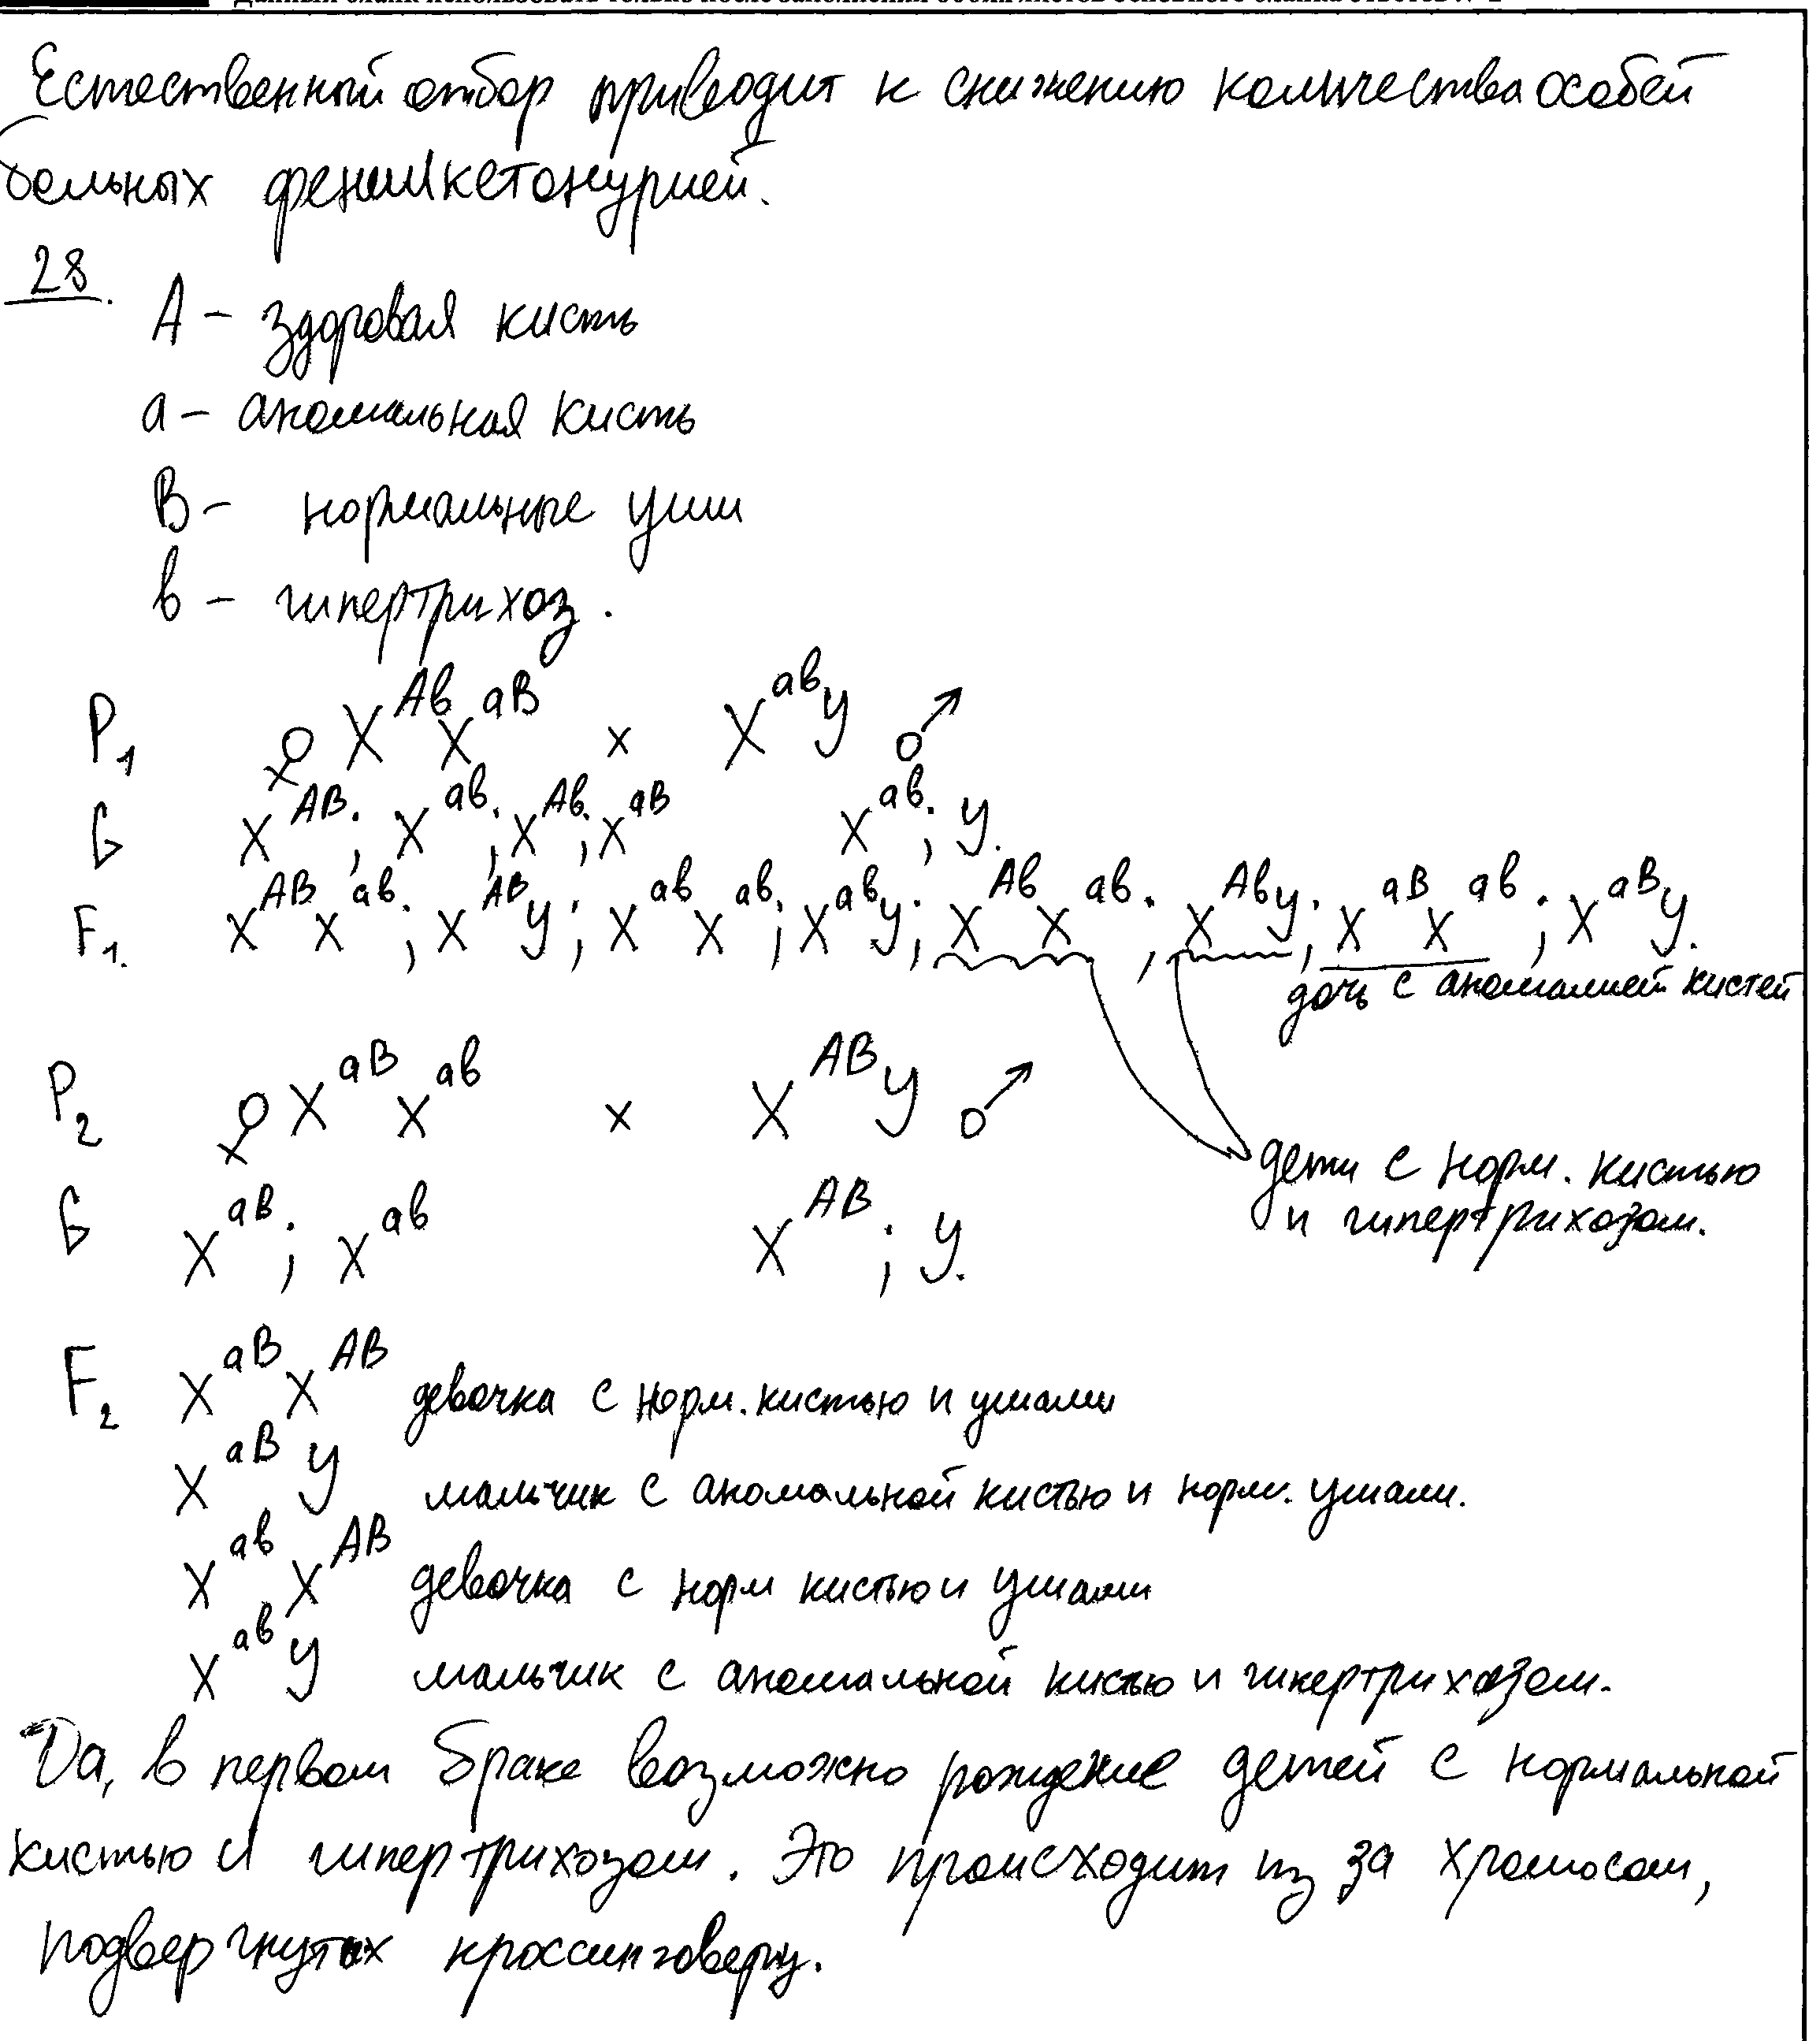 Естественный отбор приводит к снижению количества особей
больных фенилкетонурией.
28.
А – здоровая кисть
а – аномальная кисть
В – нормальные уши
в – гипертрихоз.
P₁ ♀ X^Aв X^аВ × X^ав У ♂
G X^АВ; X^ав; X^Ав; X^аВ X^ав; У.
F₁. X^АВ X^ав; X^АВ У; X^ав X^ав; X^ав У; X^Ав X^ав; X^Ав У; X^аВ X^ав; X^аВ У.
дочь с аномалией кистей
P₂ ♀ X^аВ X^ав × X^АВ У ♂
дети с норм. кистью
и гипертрихозом.
G X^аВ; X^ав X^АВ; У.
F₂ X^аВ X^АВ девочка с норм. кистью и ушами
X^аВ У мальчик с аномальной кистью и норм. ушами.
X^ав X^АВ девочка с норм кистью и ушами
X^ав У мальчик с аномальной кистью и гипертрихозом.
Да, в первом браке возможно рождение детей с нормальной
кистью и гипертрихозом. Это происходит из за хромосом,
подвергнутых кроссинговеру.